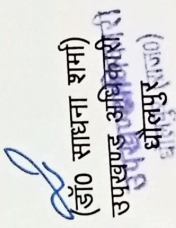 (डॉ0 साधना शर्मा)
उपखण्ड अधिकारी
धौलपुर